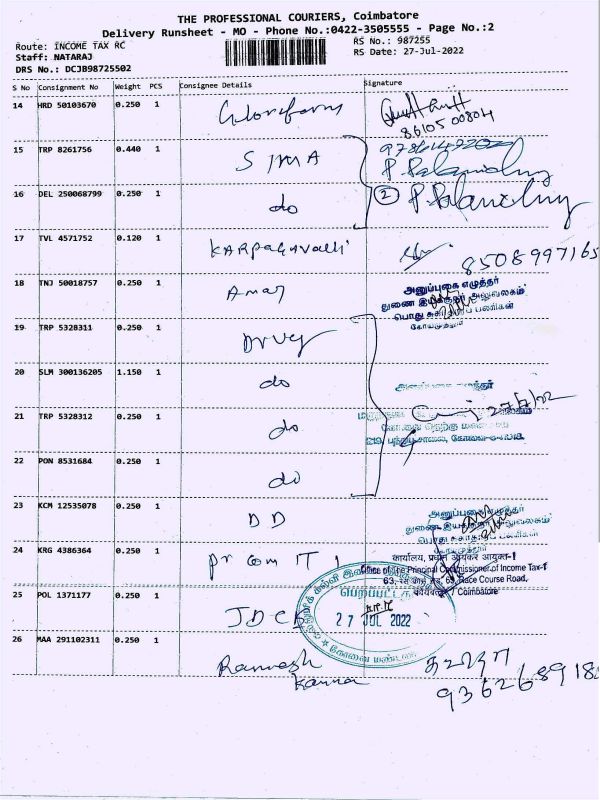 THE PROFESSIONAL COURIERS, Coimbatore
Delivery Runsheet - MO - Phone No.:0422-3505555 - Page No.:2
Route: INCOME TAX RC
RS No.: 987255
Staff: NATARAJ
RS Date: 27-Jul-2022
DRS No.: DCJB98725502
S No Consignment No Weight PCS Consignee Details Signature
14 HRD 50103670 0.250 1
86105 00804
15 TRP 8261756 0.440 1 SIMA
P. Palanichny
16 DEL 250068799 0.250 1 do
2 P. Palanichny
17 TVL 4571752 0.120 1 KARPAGAVALLI 8508997165
18 TNJ 50018757 0.250 1 Amar
அனுப்புகை எழுத்தர்
துணை இயக்குநர் அலுவலகம்
பொது சுகாதாரப் பணிகள்
கோயமுத்தூர்
19 TRP 5328311 0.250 1 Drug
20 SLM 300136205 1.150 1 do
21 TRP 5328312 0.250 1 do 27/7/22
22 PON 8531684 0.250 1 do
23 KCM 12535078 0.250 1 DD
அனுப்புகை எழுத்தர்
துணை இயக்குநர் அலுவலகம்
பொது சுகாதாரப் பணிகள்
கோயமுத்தூர்
24 KRG 4386364 0.250 1 Pr com IT 1
कार्यालय, प्रधान आयकर आयुक्त-1
Office of the Principal Commissioner of Income Tax-1
63, रेस कोर्स रोड, 63, Race Course Road,
कोयम्बत्तूर / Coimbatore
25 POL 1371177 0.250 1 JDCE
பெறப்பட்டது
27 JUL 2022
கோவை மண்டலம்
26 MAA 291102311 0.250 1 Ramesh
Kanna
936268918